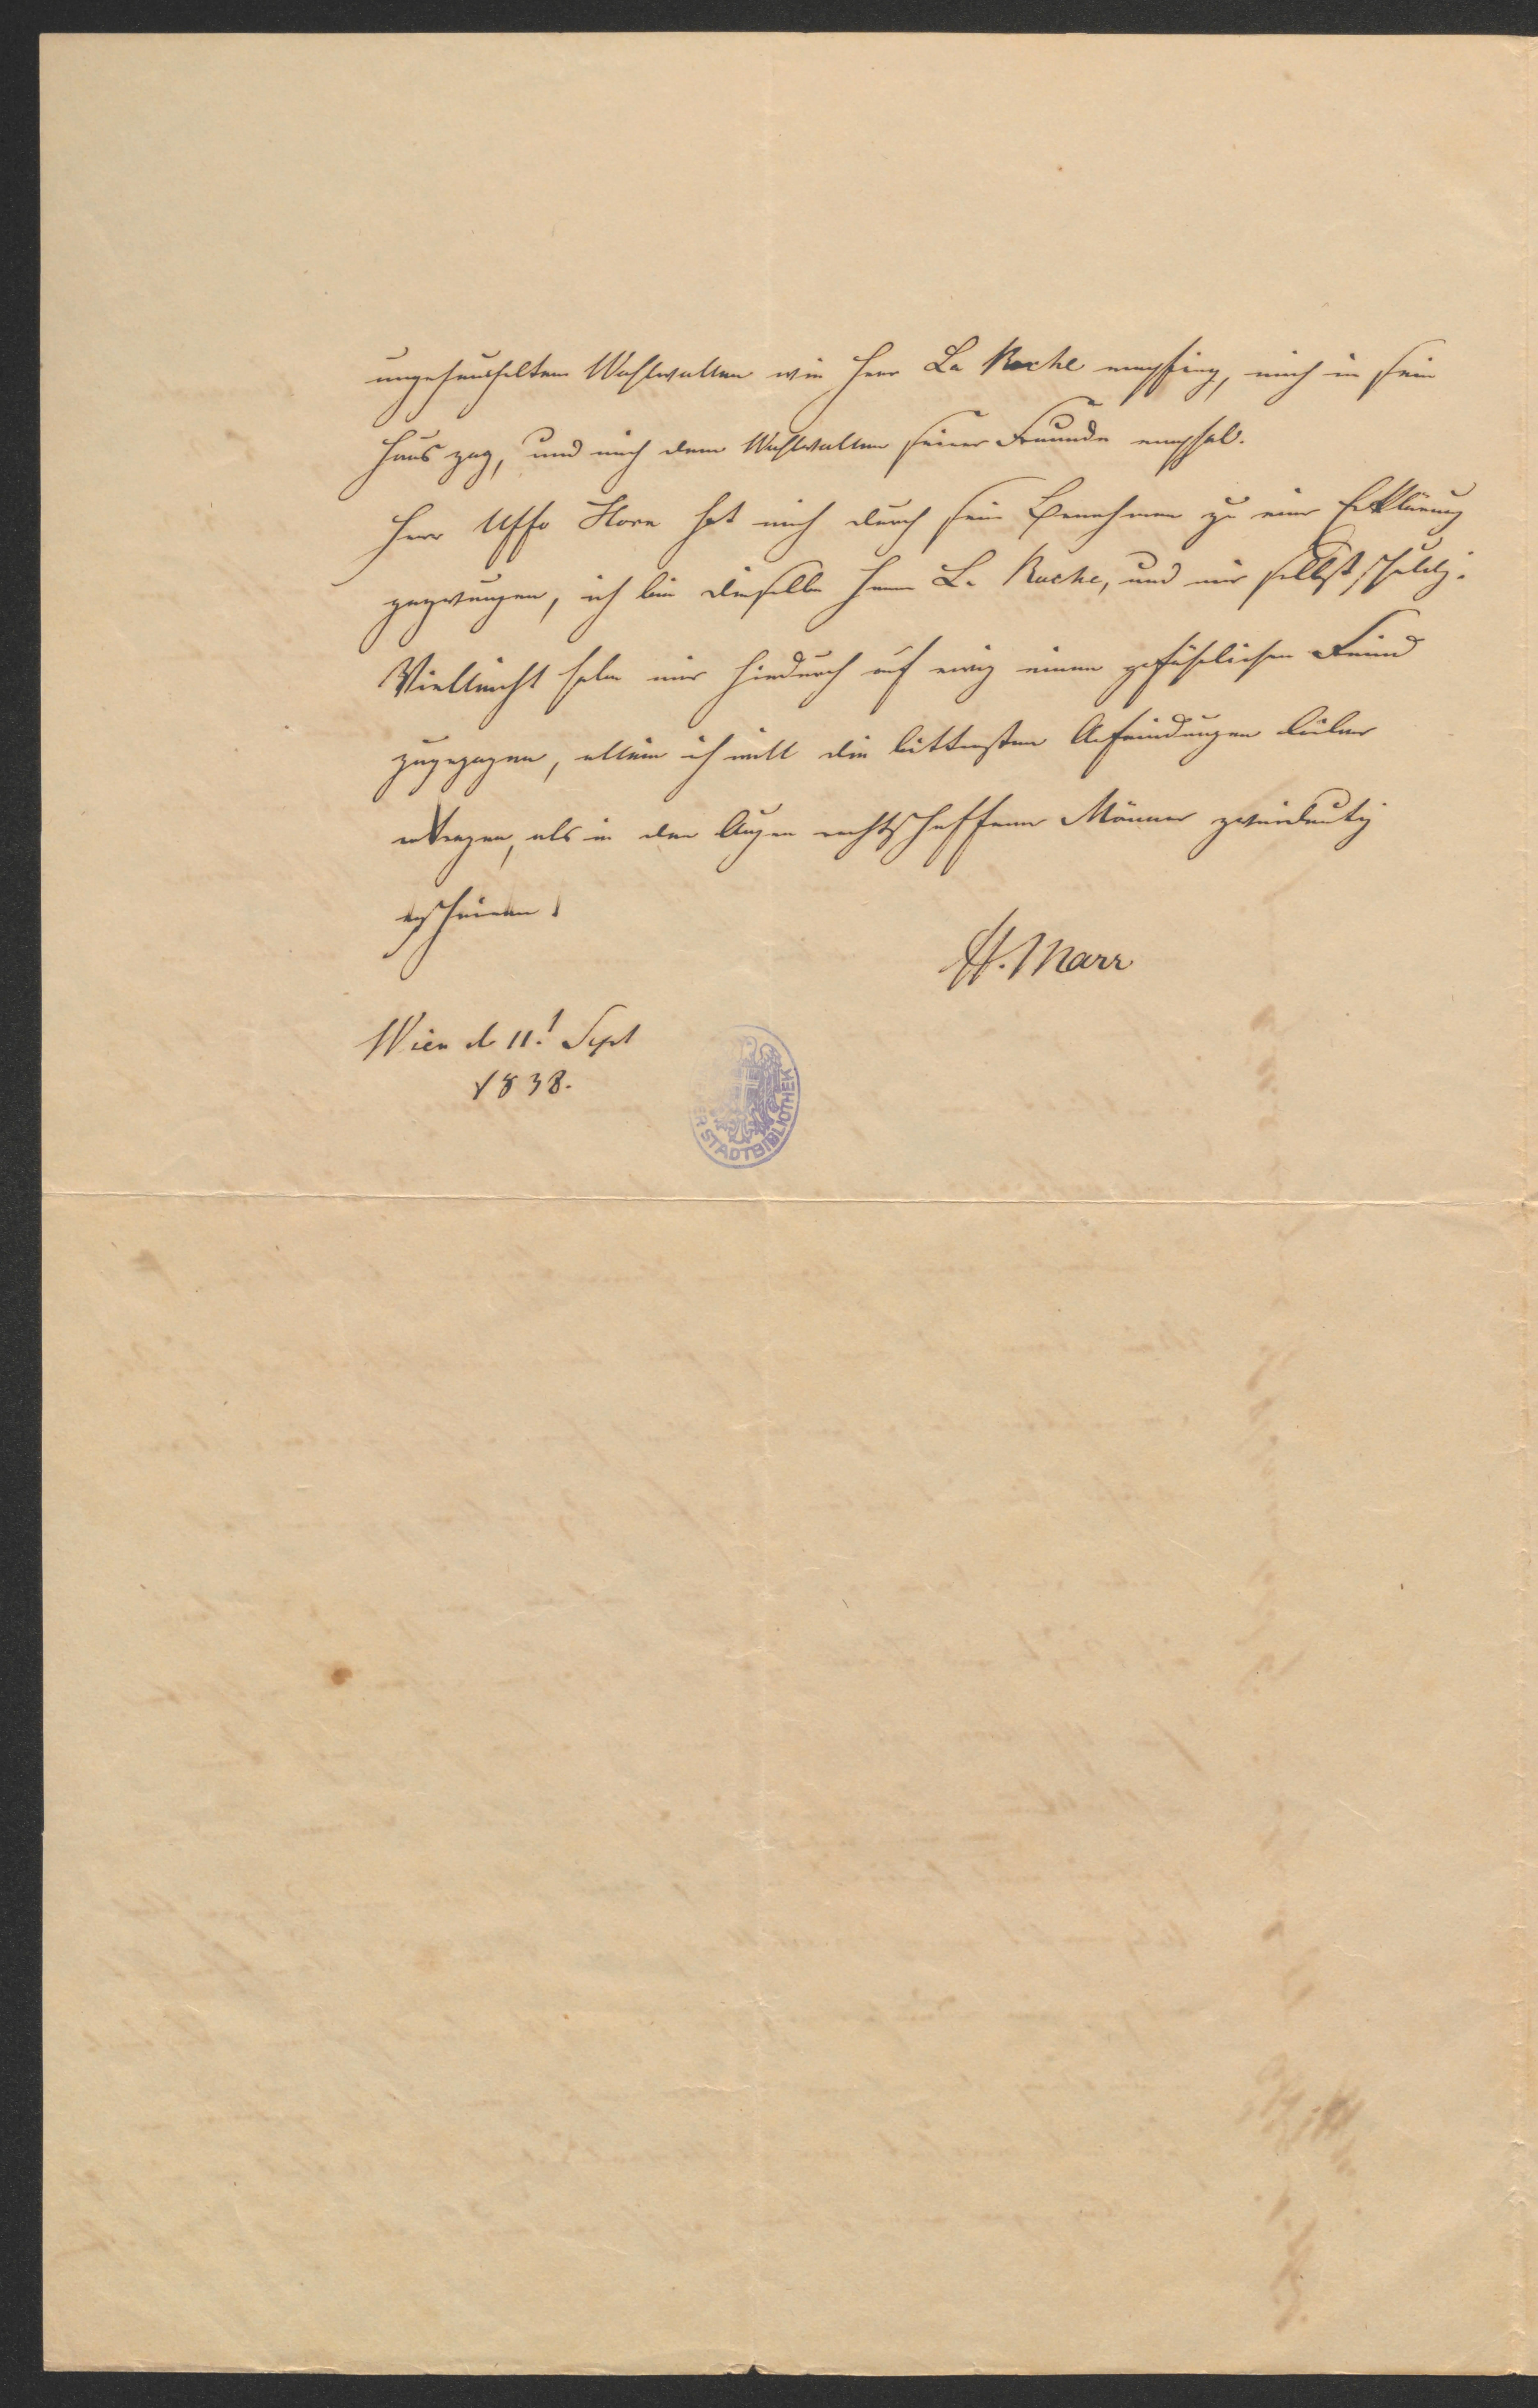 ungeheuchelten Wohlwollen wie Herr La Roche empfing, mich in sein
Haus zog, und mich dem Wohlwollen seiner Freunde empfal.
Herr Uffo Horn hat mich durch sein Benehmen zu einer Erklärung
gezwungen, ich bin dieselbe Herrn La Roche, und mir selbst schuldig.
Vielleicht habe mir hiedurch auf ewig einen gefährlichen Feind
zugezogen, allein ich will die bittersten Anfeindungen lieber
ertragen, als in den Augen rechtschaffener Männer zweideutig
erscheinen!
H. Marr
Wien d 11! Sept
1838.
STADTBIBLIOTHEK